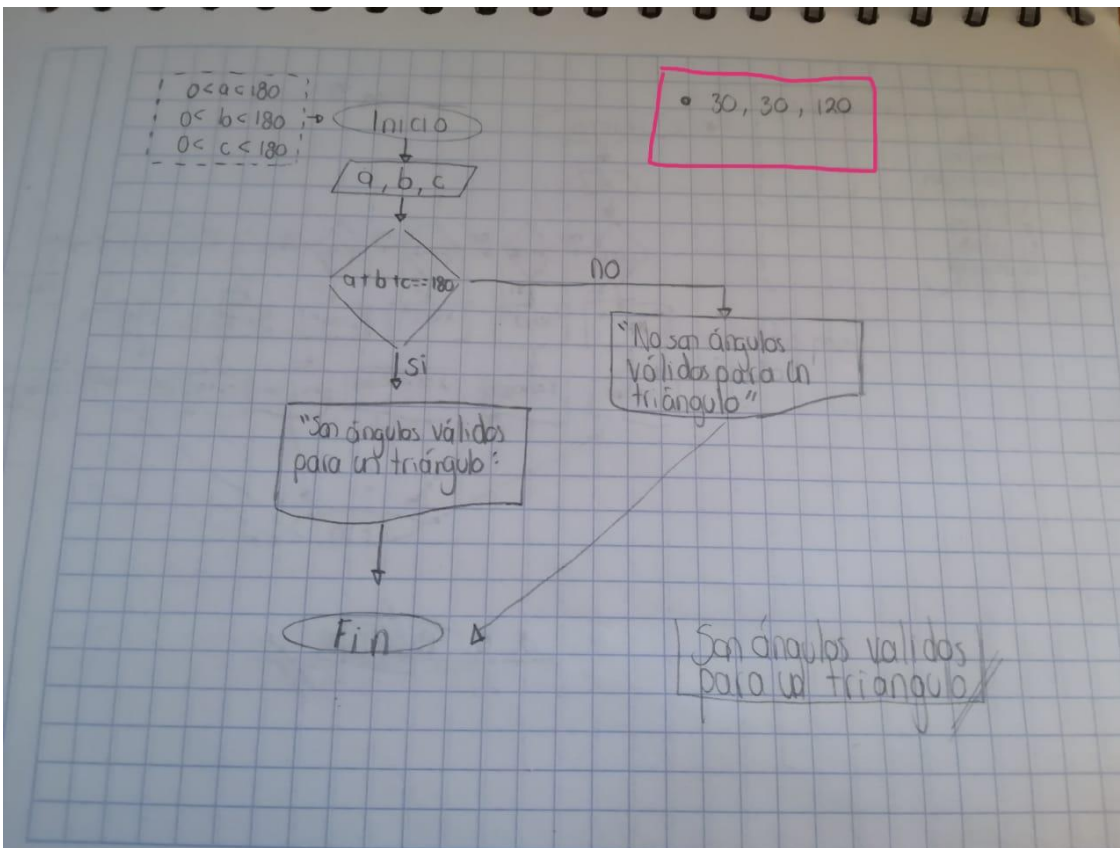 0<a<180
0< b<180
0< c<180
Inicio
a, b, c
a+b+c==180
no
si
"No son ángulos
válidos para un
triángulo"
"Son ángulos válidos
para un triángulo"
Fin
• 30, 30, 120
Son ángulos validos
para un triángulo